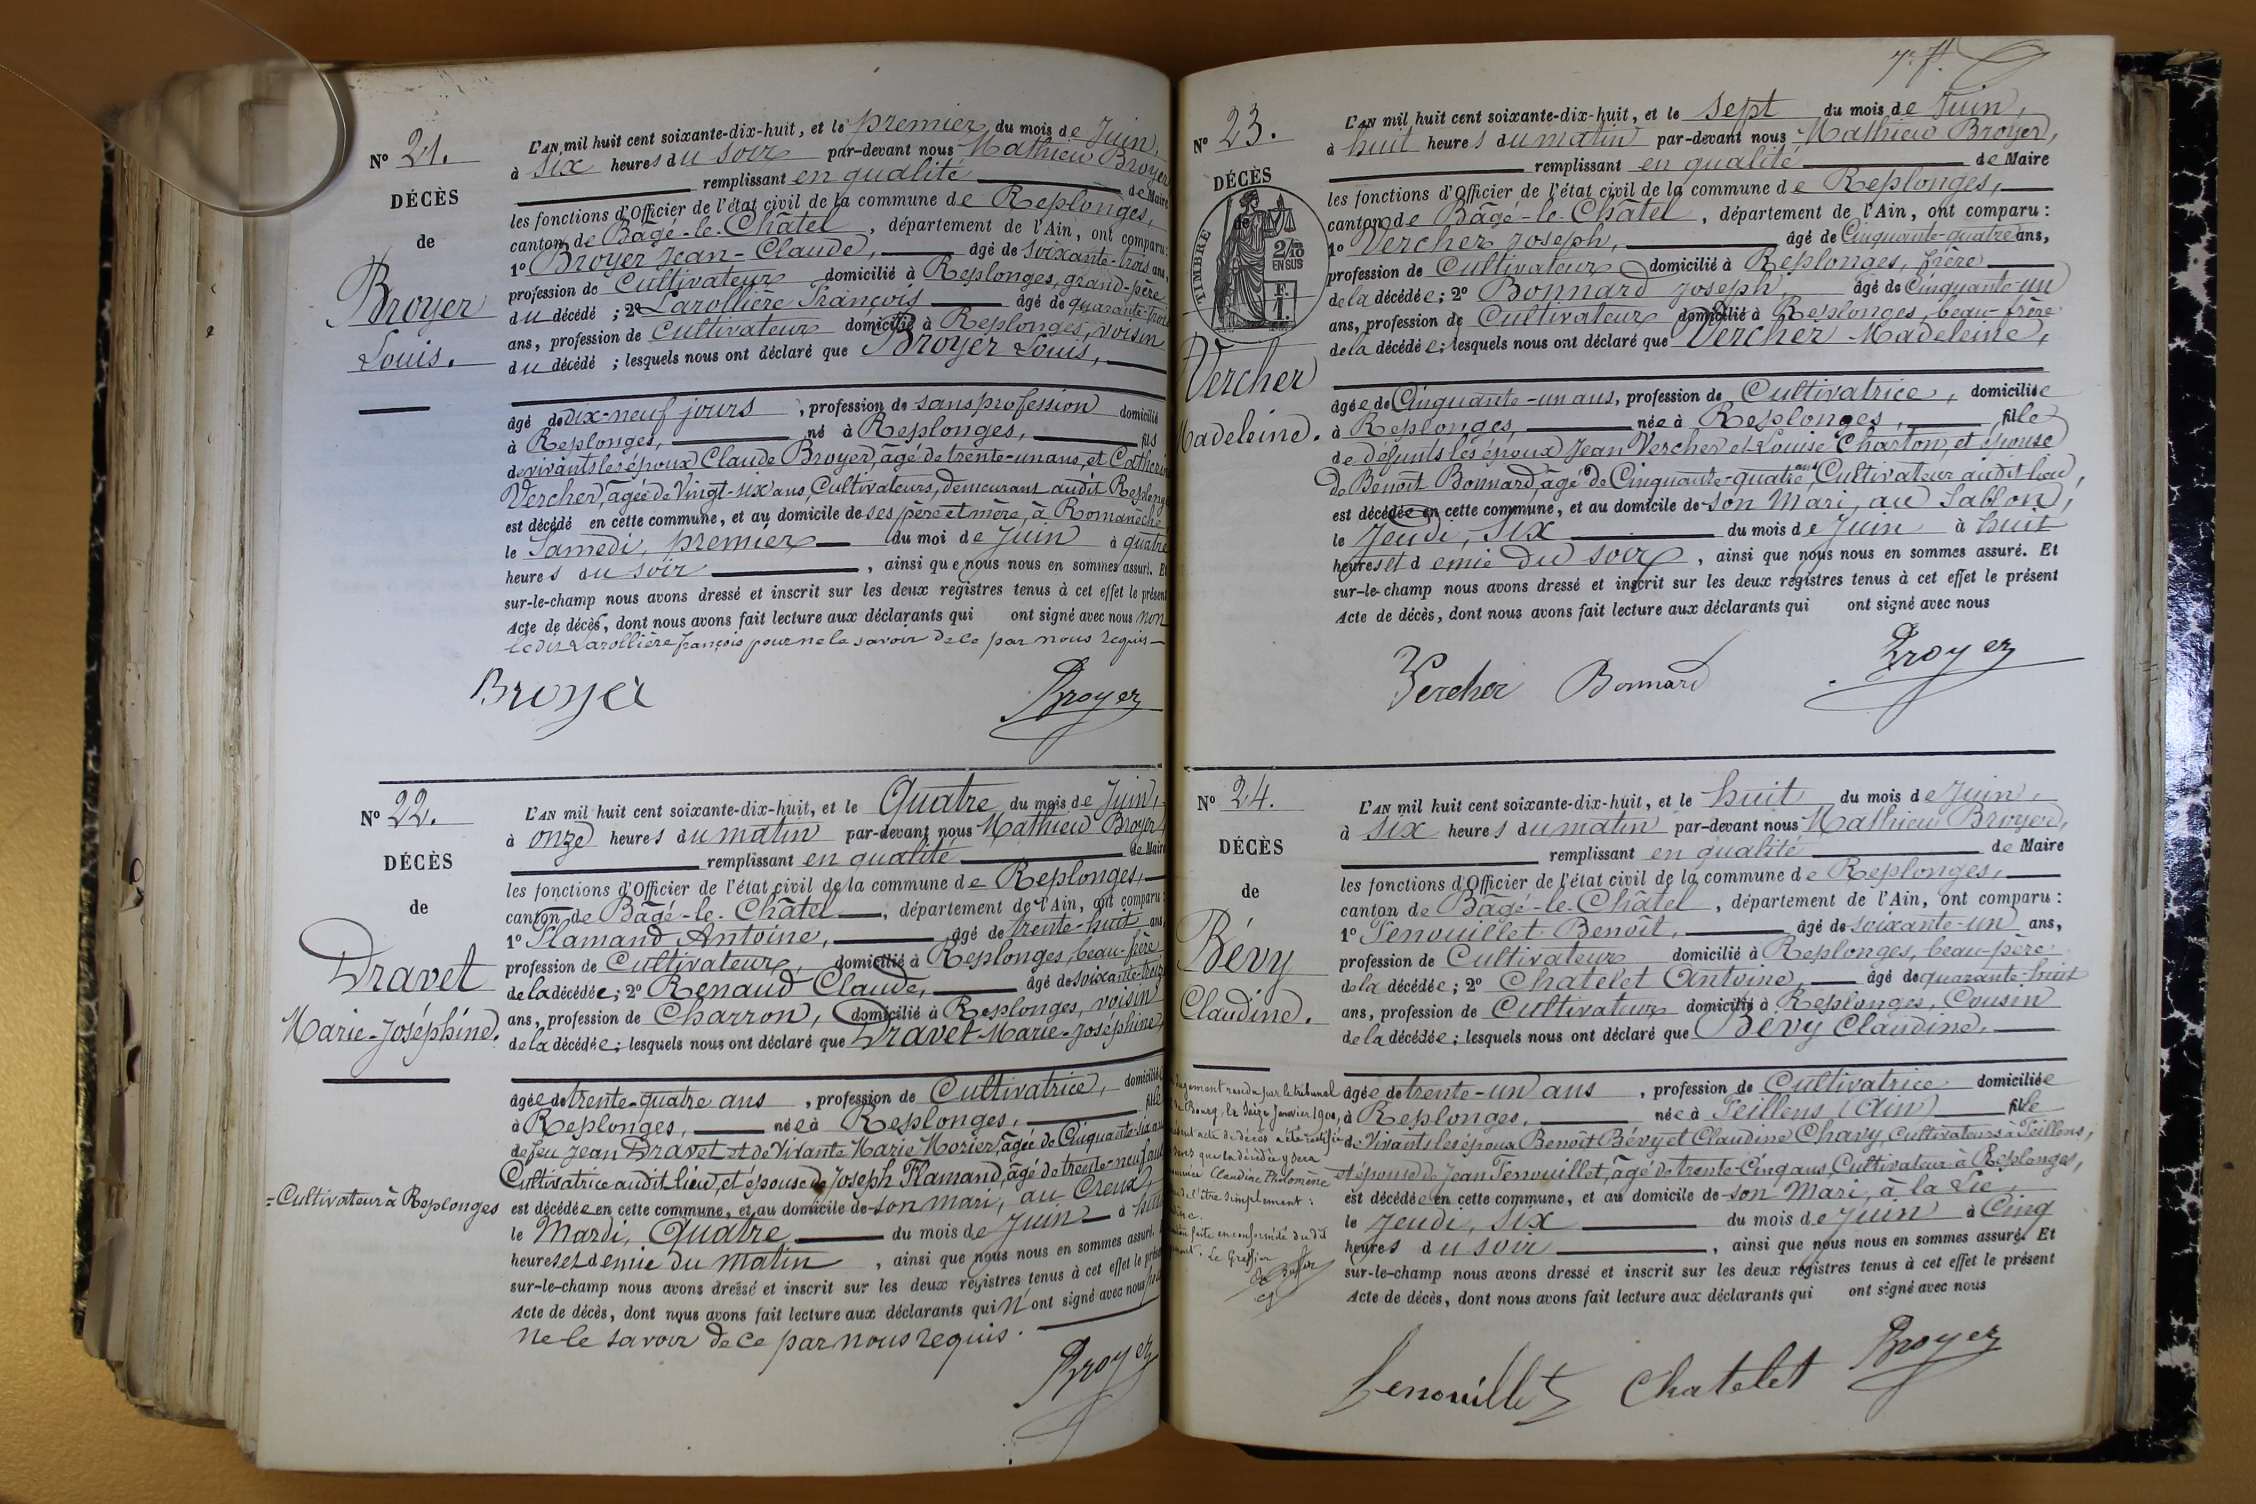 Nº 21.
DÉCÈS
de
Broyer
Louis.
L'AN mil huit cent soixante-dix-huit, et le premier du mois de Juin,
à six heures du soir par-devant nous Mathieu Broyer
remplissant en qualité de Maire
les fonctions d'Officier de l'état civil de la commune de Replonges,
canton de Bâgé-le-Châtel, département de l'Ain, ont comparu:
1º Broyer Jean-Claude, âgé de soixante-trois ans,
profession de Cultivateur domicilié à Replonges, grand-père
du décédé ; 2º Larollière François âgé de quarante-trois
ans, profession de Cultivateur domicilié à Replonges, voisin
du décédé ; lesquels nous ont déclaré que Broyer Louis,
âgé de dix-neuf jours, profession de sans profession domicilié
à Replonges, né à Replonges, fils
de vivants les époux Claude Broyer, âgé de trente-un ans, et Catherine
Vercher, âgée de Vingt-six ans, Cultivateurs, demeurant audit Replonges
est décédé en cette commune, et au domicile de ses père et mère, à Romanèche
le Samedi, premier du moi de Juin à quatre
heures du soir, ainsi que nous nous en sommes assuré. Et
sur-le-champ nous avons dressé et inscrit sur les deux registres tenus à cet effet le présent
Acte de décès, dont nous avons fait lecture aux déclarants qui ont signé avec nous non
ledit Larollière françois pour ne le savoir de ce par nous requis
Broyer Broyer
Nº 22.
DÉCÈS
de
Dravet
Marie-Joséphine.
L'AN mil huit cent soixante-dix-huit, et le Quatre du mois de Juin,
à onze heures du matin par-devant nous Mathieu Broyer,
remplissant en qualité de Maire
les fonctions d'Officier de l'état civil de la commune de Replonges,
canton de Bâgé-le-Châtel, département de l'Ain, ont comparu:
1º Flamand Antoine, âgé de trente-huit ans,
profession de Cultivateur, domicilié à Replonges, beau-frère
de la décédée; 2º Renaud Claude, âgé de soixante-treize
ans, profession de Charron, domicilié à Replonges, voisin
de la décédée; lesquels nous ont déclaré que Dravet Marie-Joséphine,
âgée de trente-quatre ans, profession de Cultivatrice, domiciliée
à Replonges, née à Replonges, fille
de feu Jean Dravet et de Vivante Marie Morier, âgée de Cinquante-six ans
Cultivatrice audit lieu, et épouse de Joseph Flamand, âgé de trente-neuf ans
=Cultivateur à Replonges
est décédée en cette commune, et au domicile de son mari, au Creux,
le Mardi, Quatre du mois de Juin à huit
heures et demie du matin, ainsi que nous nous en sommes assuré.
sur-le-champ nous avons dressé et inscrit sur les deux registres tenus à cet effet le présent
Acte de décès, dont nous avons fait lecture aux déclarants qui N'ont signé avec nous pour
ne le savoir de ce par nous requis.
Broyer
Nº 23.
DÉCÈS
de
TIMBRE
2/10
EN SUS
F.
1.
Vercher
Madeleine.
L'AN mil huit cent soixante-dix-huit, et le Sept du mois de Juin,
à huit heures du matin par-devant nous Mathieu Broyer,
remplissant en qualité de Maire
les fonctions d'Officier de l'état civil de la commune de Replonges,
canton de Bâgé-le-Châtel, département de l'Ain, ont comparu:
1º Vercher Joseph, âgé de Cinquante-quatre ans,
profession de Cultivateur domicilié à Replonges, frère
de la décédée; 2º Bonnard Joseph, âgé de Cinquante-un
ans, profession de Cultivateur domicilié à Replonges, beau-frère
de la décédée; lesquels nous ont déclaré que Vercher Madeleine,
âgée de Cinquante-un ans, profession de Cultivatrice, domiciliée
à Replonges, née à Replonges, fille
de défunts les époux Jean Vercher et Louise Charton, et épouse
de Benoît Bonnard, âgé de Cinquante-quatre ans Cultivateur audit lieu,
est décédée en cette commune, et au domicile de son Mari, au Sablon,
le Jeudi, Six du mois de Juin à huit
heures et demie du soir, ainsi que nous nous en sommes assuré. Et
sur-le-champ nous avons dressé et inscrit sur les deux registres tenus à cet effet le présent
Acte de décès, dont nous avons fait lecture aux déclarants qui ont signé avec nous
Vercher Bonnard Broyer
Nº 24.
DÉCÈS
de
Bévy
Claudine.
L'AN mil huit cent soixante-dix-huit, et le huit du mois de Juin,
à six heures du matin par-devant nous Mathieu Broyer,
remplissant en qualité de Maire
les fonctions d'Officier de l'état civil de la commune de Replonges,
canton de Bâgé-le-Châtel, département de l'Ain, ont comparu:
1º Fenouillet Benoît, âgé de soixante-un ans,
profession de Cultivateur domicilié à Replonges, beau-père
de la décédée; 2º Chatelet Antoine, âgé de quarante-huit
ans, profession de Cultivateur domicilié à Replonges, Cousin
de la décédée; lesquels nous ont déclaré que Bévy Claudine,
âgée de trente-un ans, profession de Cultivatrice domiciliée
à Replonges, née à Feillens (Ain) fille
de Vivants les époux Benoît Bévy et Claudine Chavy, Cultivateurs à Feillens,
et épouse de Jean Fenouillet, âgé de trente-Cinq ans, Cultivateur à Replonges,
est décédée en cette commune, et au domicile de son Mari, à la Lie,
le Jeudi, six du mois de Juin à Cinq
heures du soir, ainsi que nous nous en sommes assuré. Et
sur-le-champ nous avons dressé et inscrit sur les deux registres tenus à cet effet le présent
Acte de décès, dont nous avons fait lecture aux déclarants qui ont signé avec nous
jugement rendu par le tribunal
de Bourg, le Seize Janvier 1900,
acte de décès a été rectifié
que la décédée y sera
Claudine Philomène
de l'être simplement:
faite en conformité du dit
Le Greffier
Fenouillet Chatelet Broyer